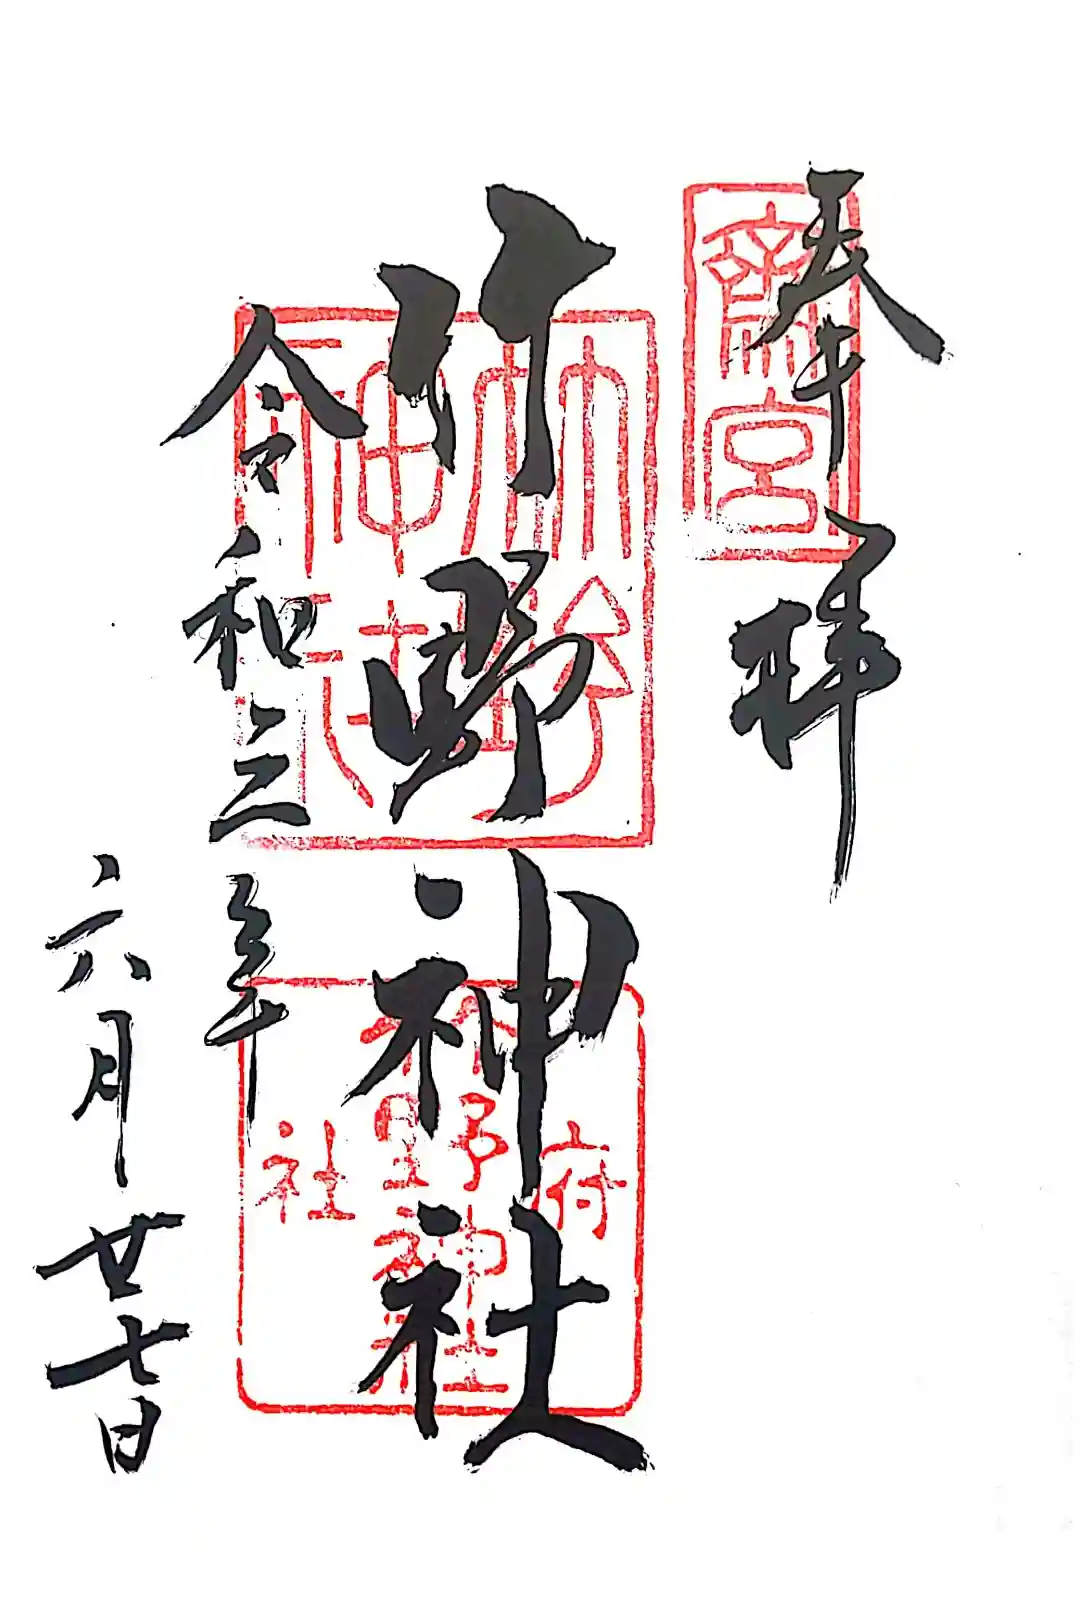 奉拝
齋宮
竹野神社
竹野
神社
府
竹野神社
社
令和三年
六月廿七日